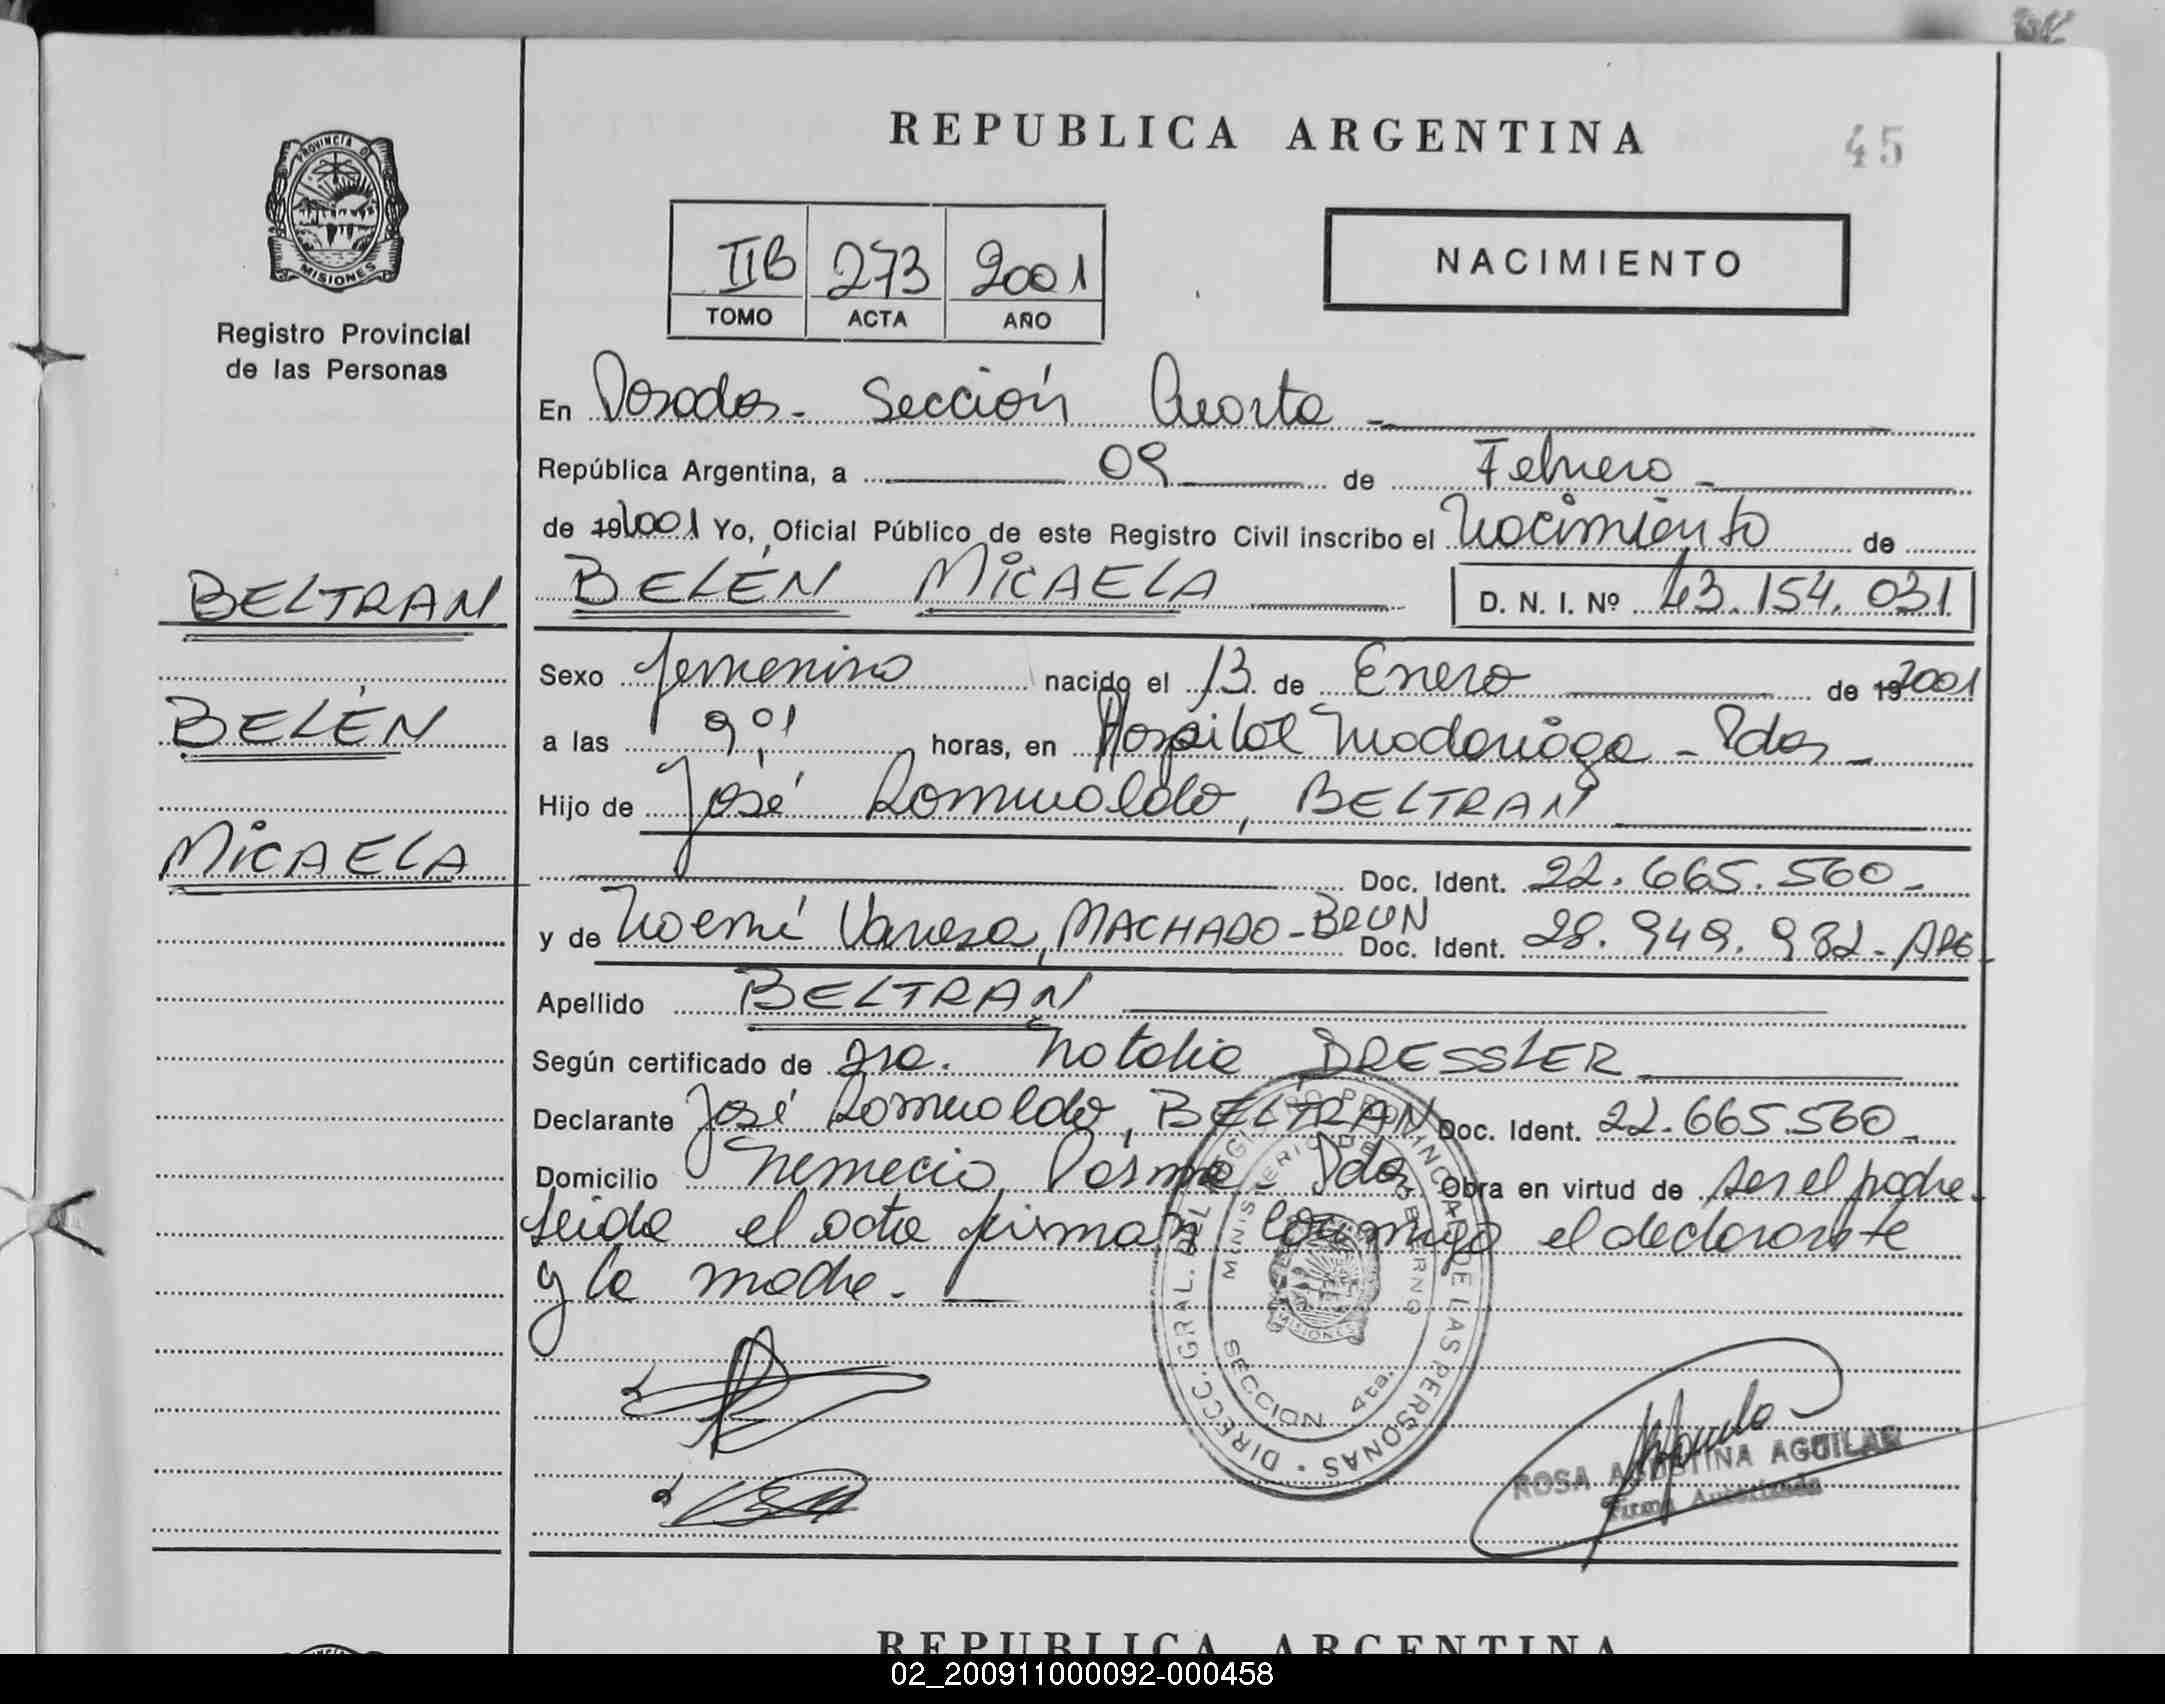 REPUBLICA ARGENTINA
45
PROVINCIA DE
MISIONES
Registro Provincial
de las Personas
IIB 273 2001
TOMO ACTA AÑO
NACIMIENTO
En Posadas - Sección Cuarta -
República Argentina, a 09 de Febrero -
de 19 2001 Yo, Oficial Público de este Registro Civil inscribo el Nacimiento de
BELÉN MICAELA D. N. I. Nº 43.154.031
BELTRAN
BELÉN
MICAELA
Sexo femenino nacido el 13 de Enero de 19 2001
a las 9:01 horas, en Hospital Madariaga - Pdas -
Hijo de José Romualdo, BELTRAN
Doc. Ident. 22.665.560 -
y de Noemí Vanesa, MACHADO - BRUN Doc. Ident. 28.949.982 - ARG -
Apellido BELTRAN
Según certificado de Dra. Natalia DRESSLER
Declarante José Romualdo, BELTRAN Doc. Ident. 22.665.560 -
Domicilio Nemecio Parma - Pdas. Obra en virtud de ser el padre -
Leida el acta firman conmigo el declarante
y la madre. -
DIRECC. GRAL. DEL REGISTRO PROVINCIAL DE LAS PERSONAS
MINISTERIO DE GOBIERNO
MISIONES
SECCION 4ta.
ROSA AGUSTINA AGUILAR
Firma Autorizada
REPUBLICA ARGENTINA
02_200911000092-000458